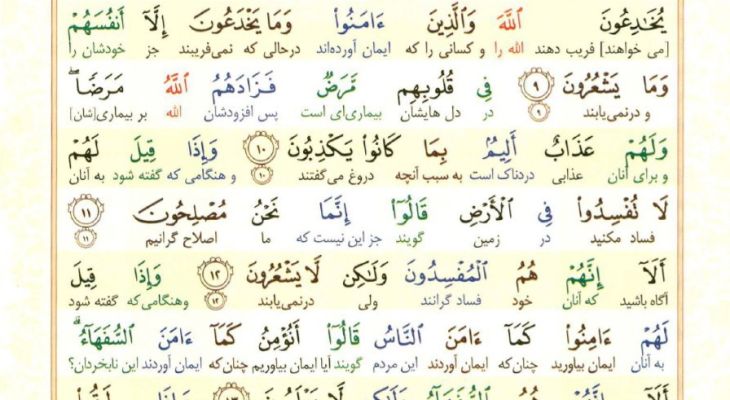 يُخَـٰدِعُونَ ٱللَّهَ وَٱلَّذِينَ ءَامَنُوا۟ وَمَا يَخْدَعُونَ إِلَّآ أَنفُسَهُمْ
[می خواهند] فریب دهند الله را و کسانی را که ایمان آورده‌اند درحالی که نمی‌فریبند جز خودشان را
وَمَا يَشْعُرُونَ ٩ فِى قُلُوبِهِم مَّرَضٌ فَزَادَهُمُ ٱللَّهُ مَرَضًا ۖ
و درنمی‌یابند ٩ در دل هایشان بیماری‌ای است پس افزودشان الله بر بیماری[شان]
وَلَهُمْ عَذَابٌ أَلِيمٌۢ بِمَا كَانُوا۟ يَكْذِبُونَ ١٠ وَإِذَا قِيلَ لَهُمْ
و برای آنان عذابی دردناک است به سبب آنچه دروغ می‌گفتند ١٠ و هنگامی که گفته شود به آنان
لَا تُفْسِدُوا۟ فِى ٱلْأَرْضِ قَالُوٓا۟ إِنَّمَا نَحْنُ مُصْلِحُونَ ١١
فساد مکنید در زمین گویند جز این نیست که ما اصلاح گرانیم ١١
أَلَآ إِنَّهُمْ هُمُ ٱلْمُفْسِدُونَ وَلَـٰكِن لَّا يَشْعُرُونَ ١٢ وَإِذَا قِيلَ
آگاه باشید که آنان خود فساد گرانند ولی درنمی‌یابند ١٢ وهنگامی‌که گفته شود
لَهُمْ ءَامِنُوا۟ كَمَآ ءَامَنَ ٱلنَّاسُ قَالُوٓا۟ أَنُؤْمِنُ كَمَآ ءَامَنَ ٱلسُّفَهَآءُ ۗ
به آنان ایمان بیاورید چنان‌که ایمان آوردند این مردم گویند آیا ایمان بیاوریم چنان‌که ایمان آوردند این نابخردان؟